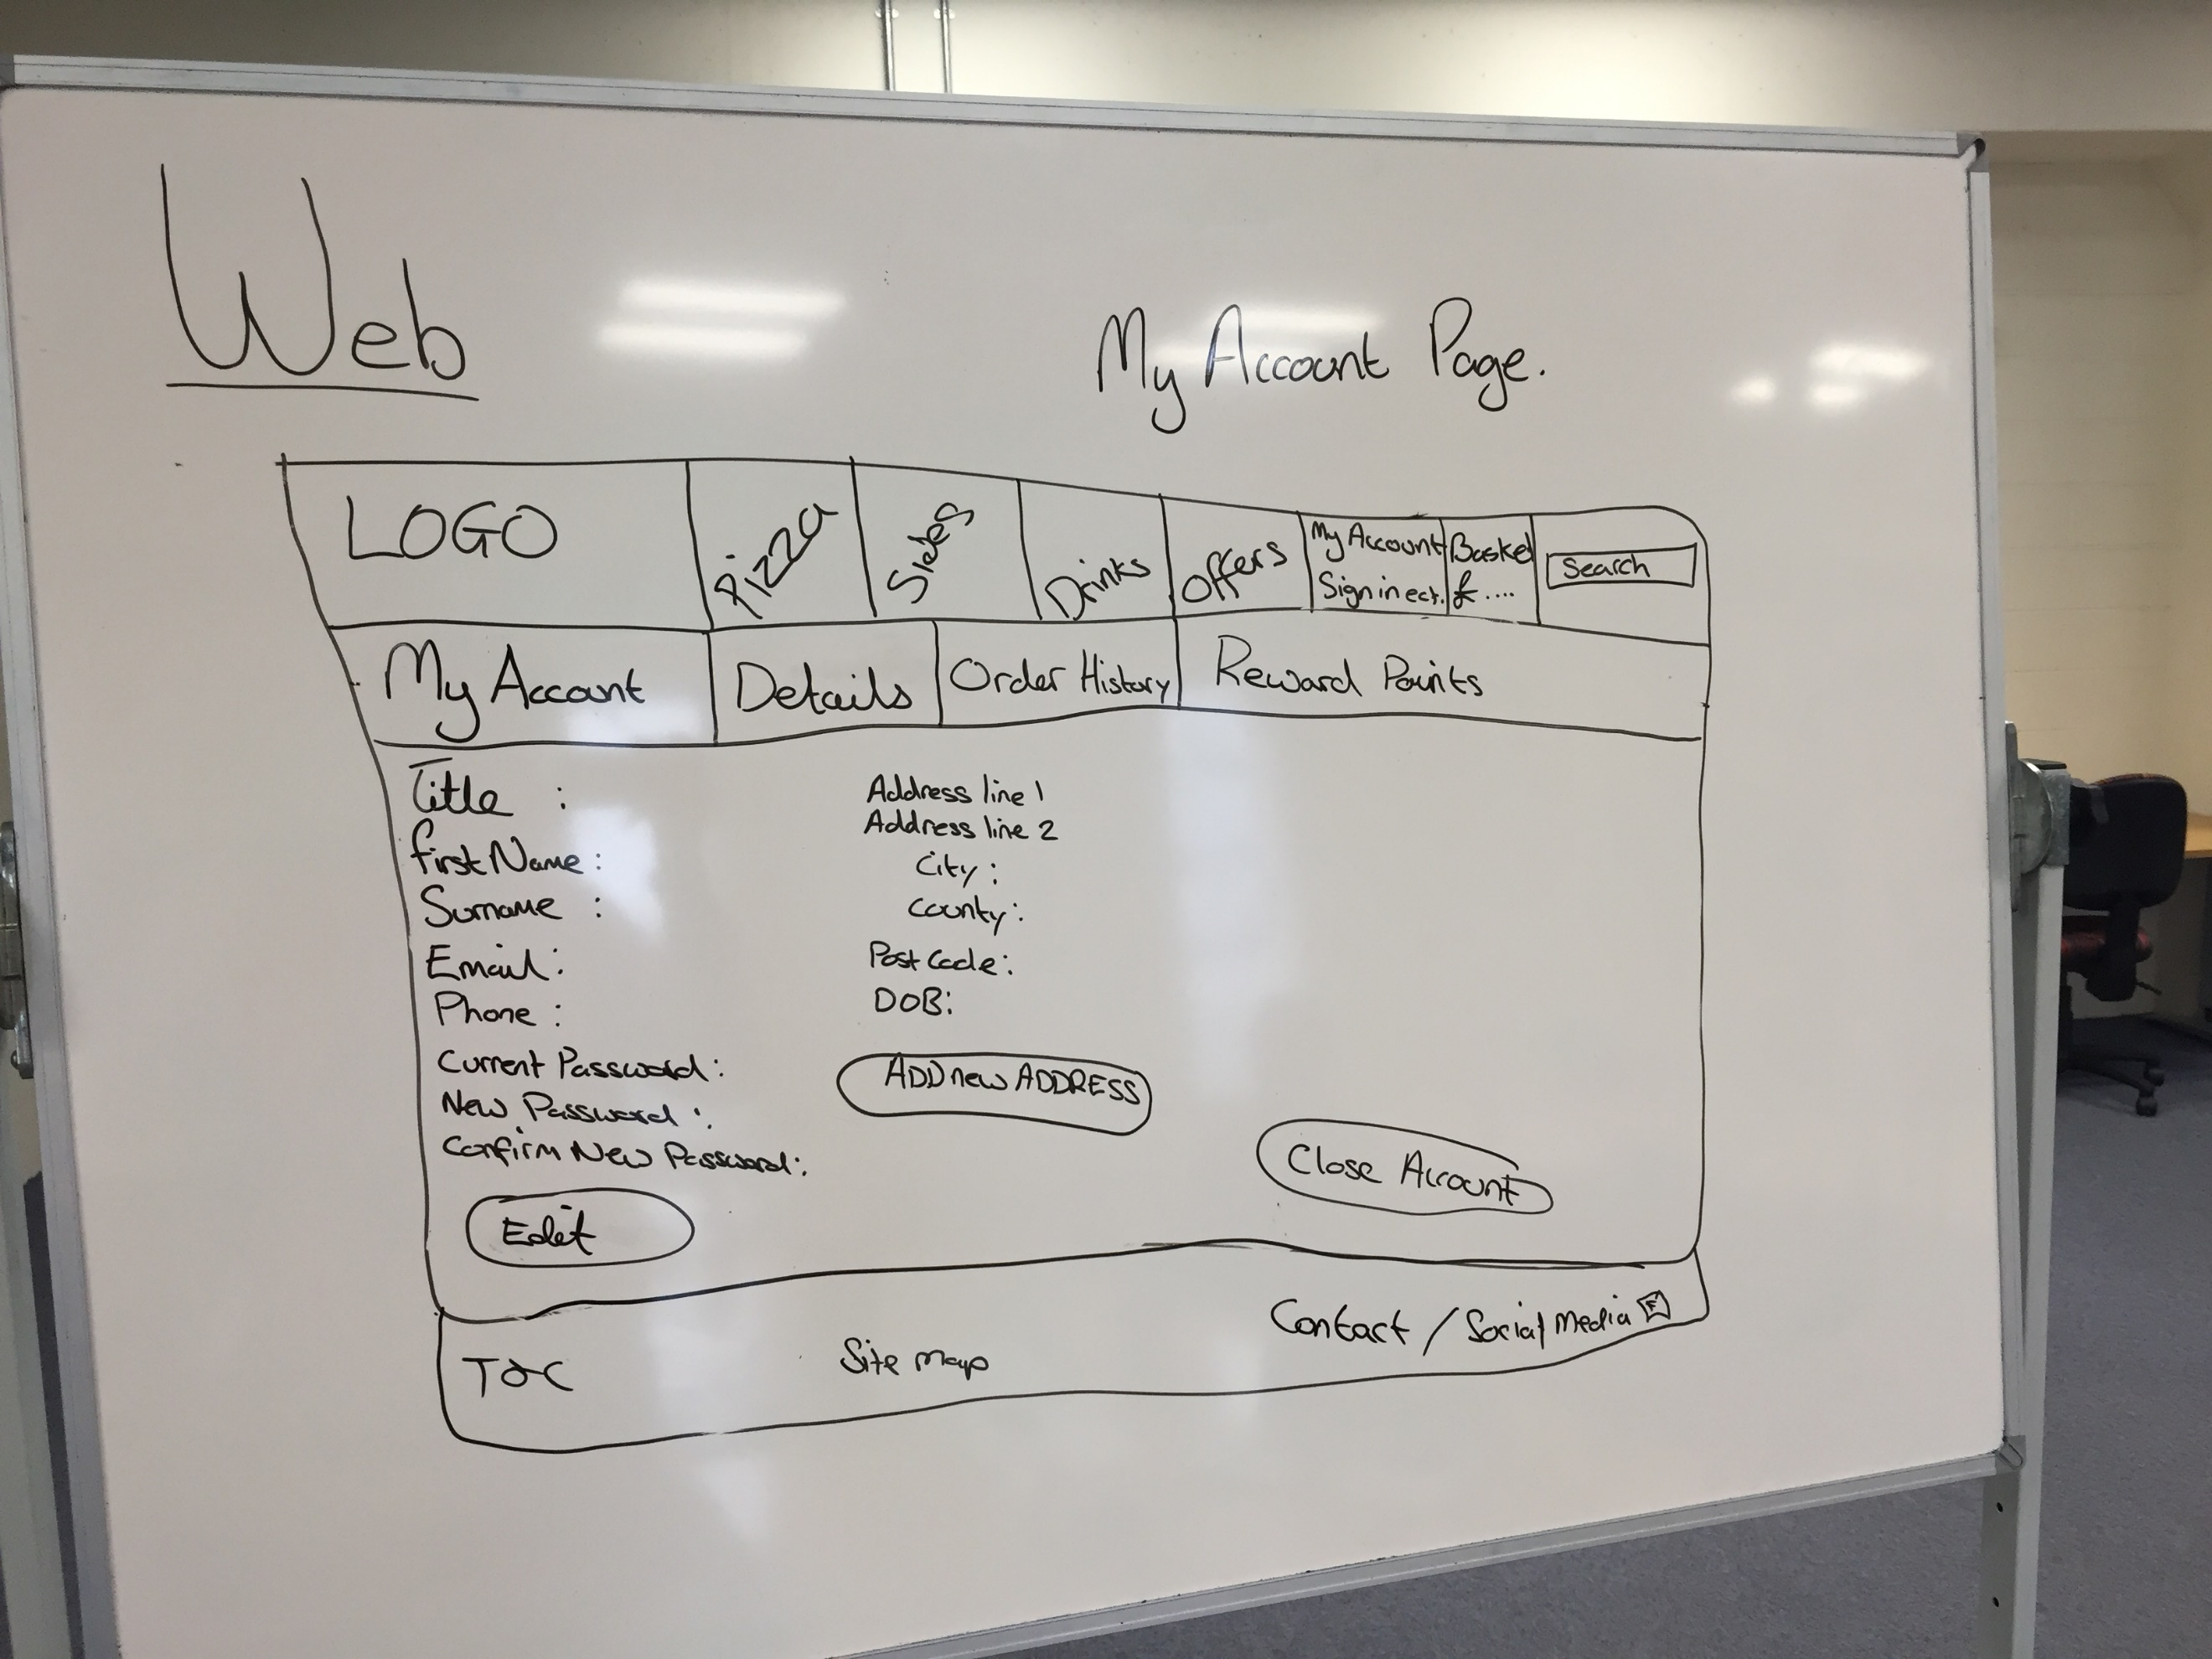 Web
My Account Page.
LOGO
Pizza
Sides
Drinks
Offers
My Account
Sign in ect.
Basket
£....
Search
My Account
Details
Order History
Reward Points
Title :
First Name :
Surname :
Email :
Phone :
Current Password :
New Password :
Confirm New Password :
Edit
Address line 1
Address line 2
City :
County :
Post Code :
DOB :
ADD new ADDRESS
Close Account
T&C
Site map
Contact / Social Media F